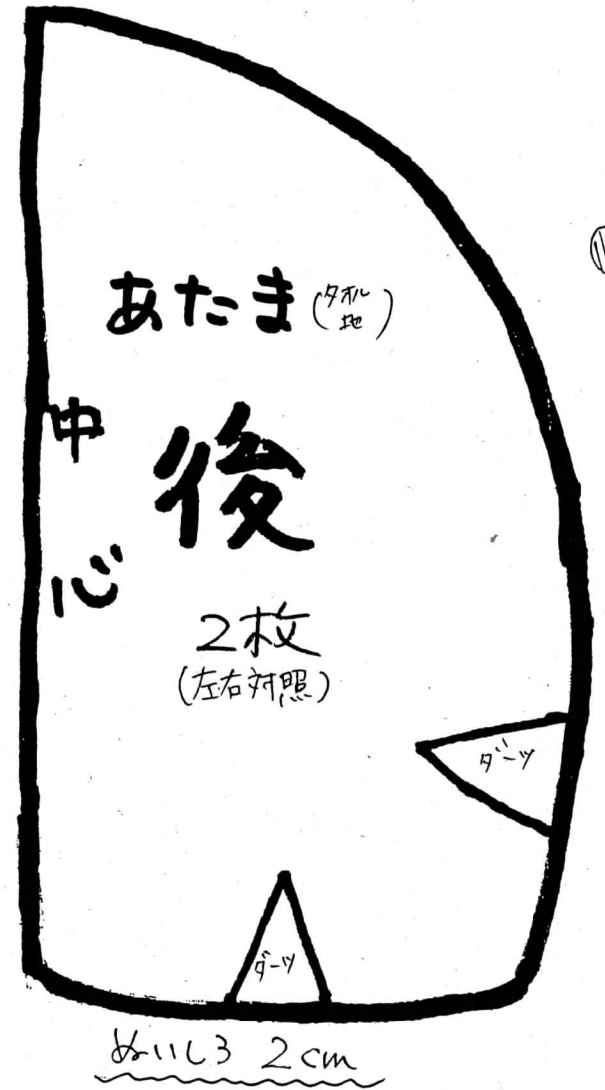 あたま(タオル地)
中心
後
2枚
(左右対照)
ダーツ
ダーツ
ぬいしろ 2cm